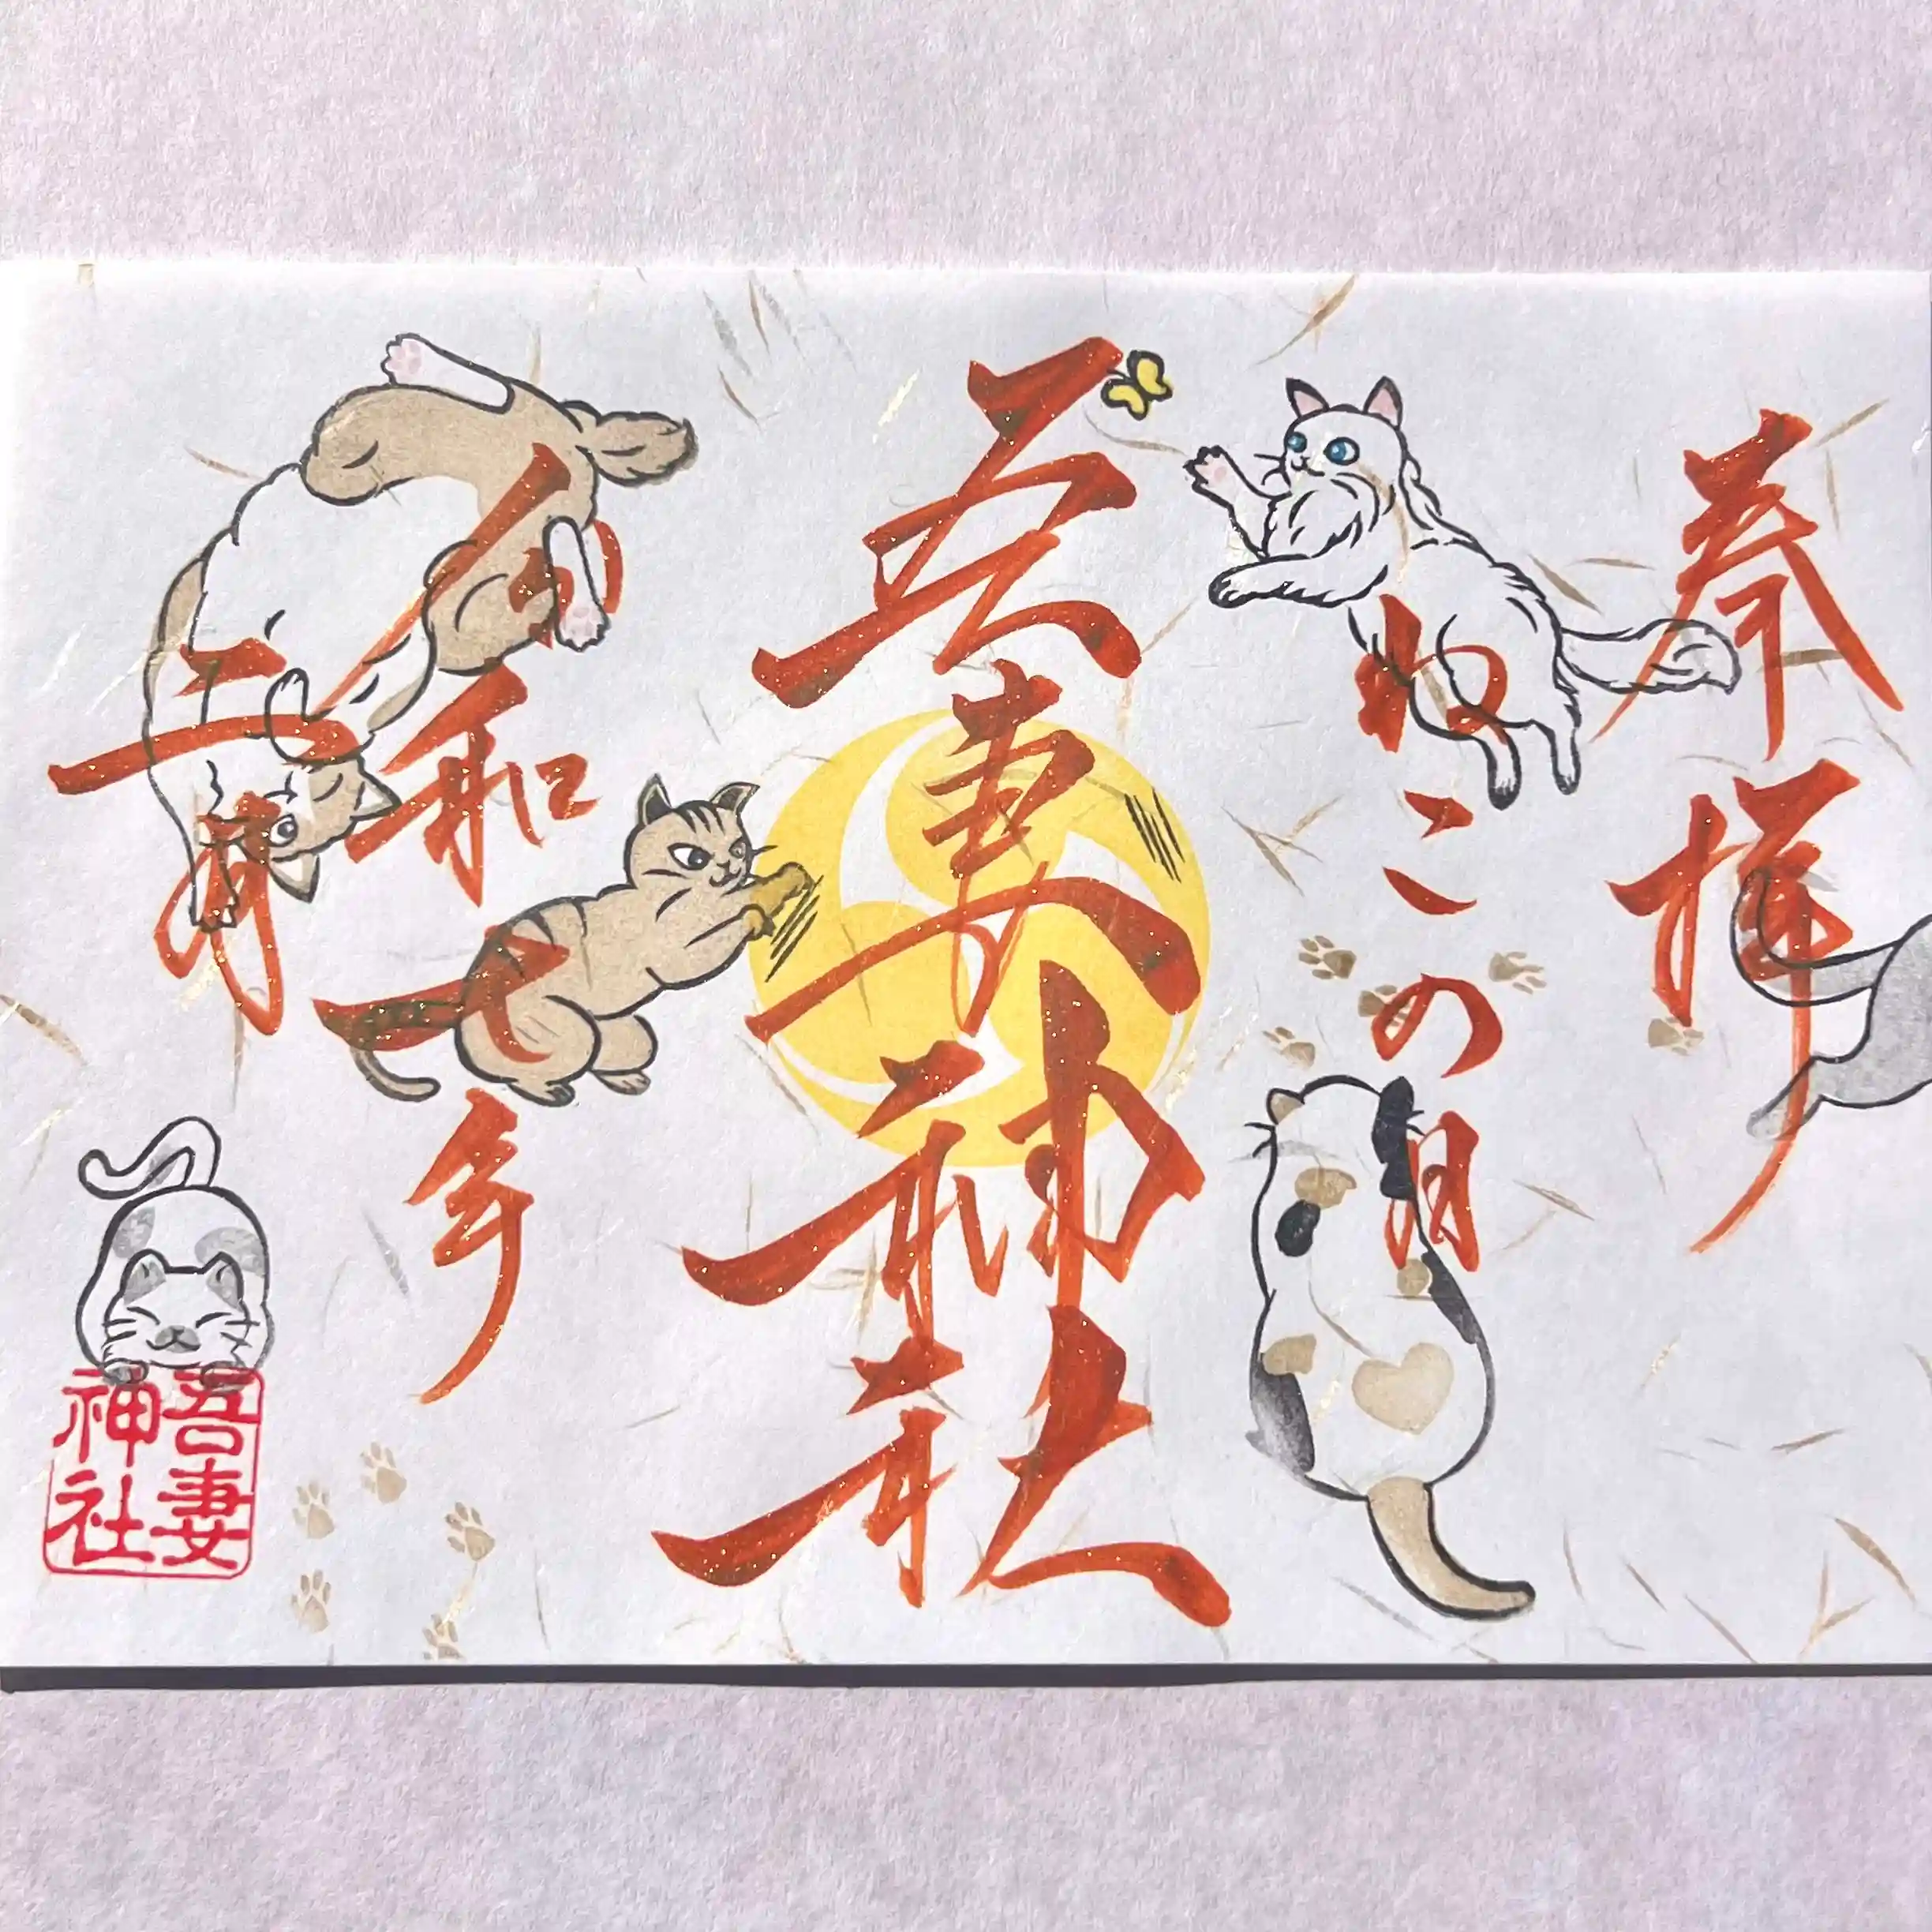 奉拝
ねこの月
吾妻神社
令和七年
二月
吾妻
神社